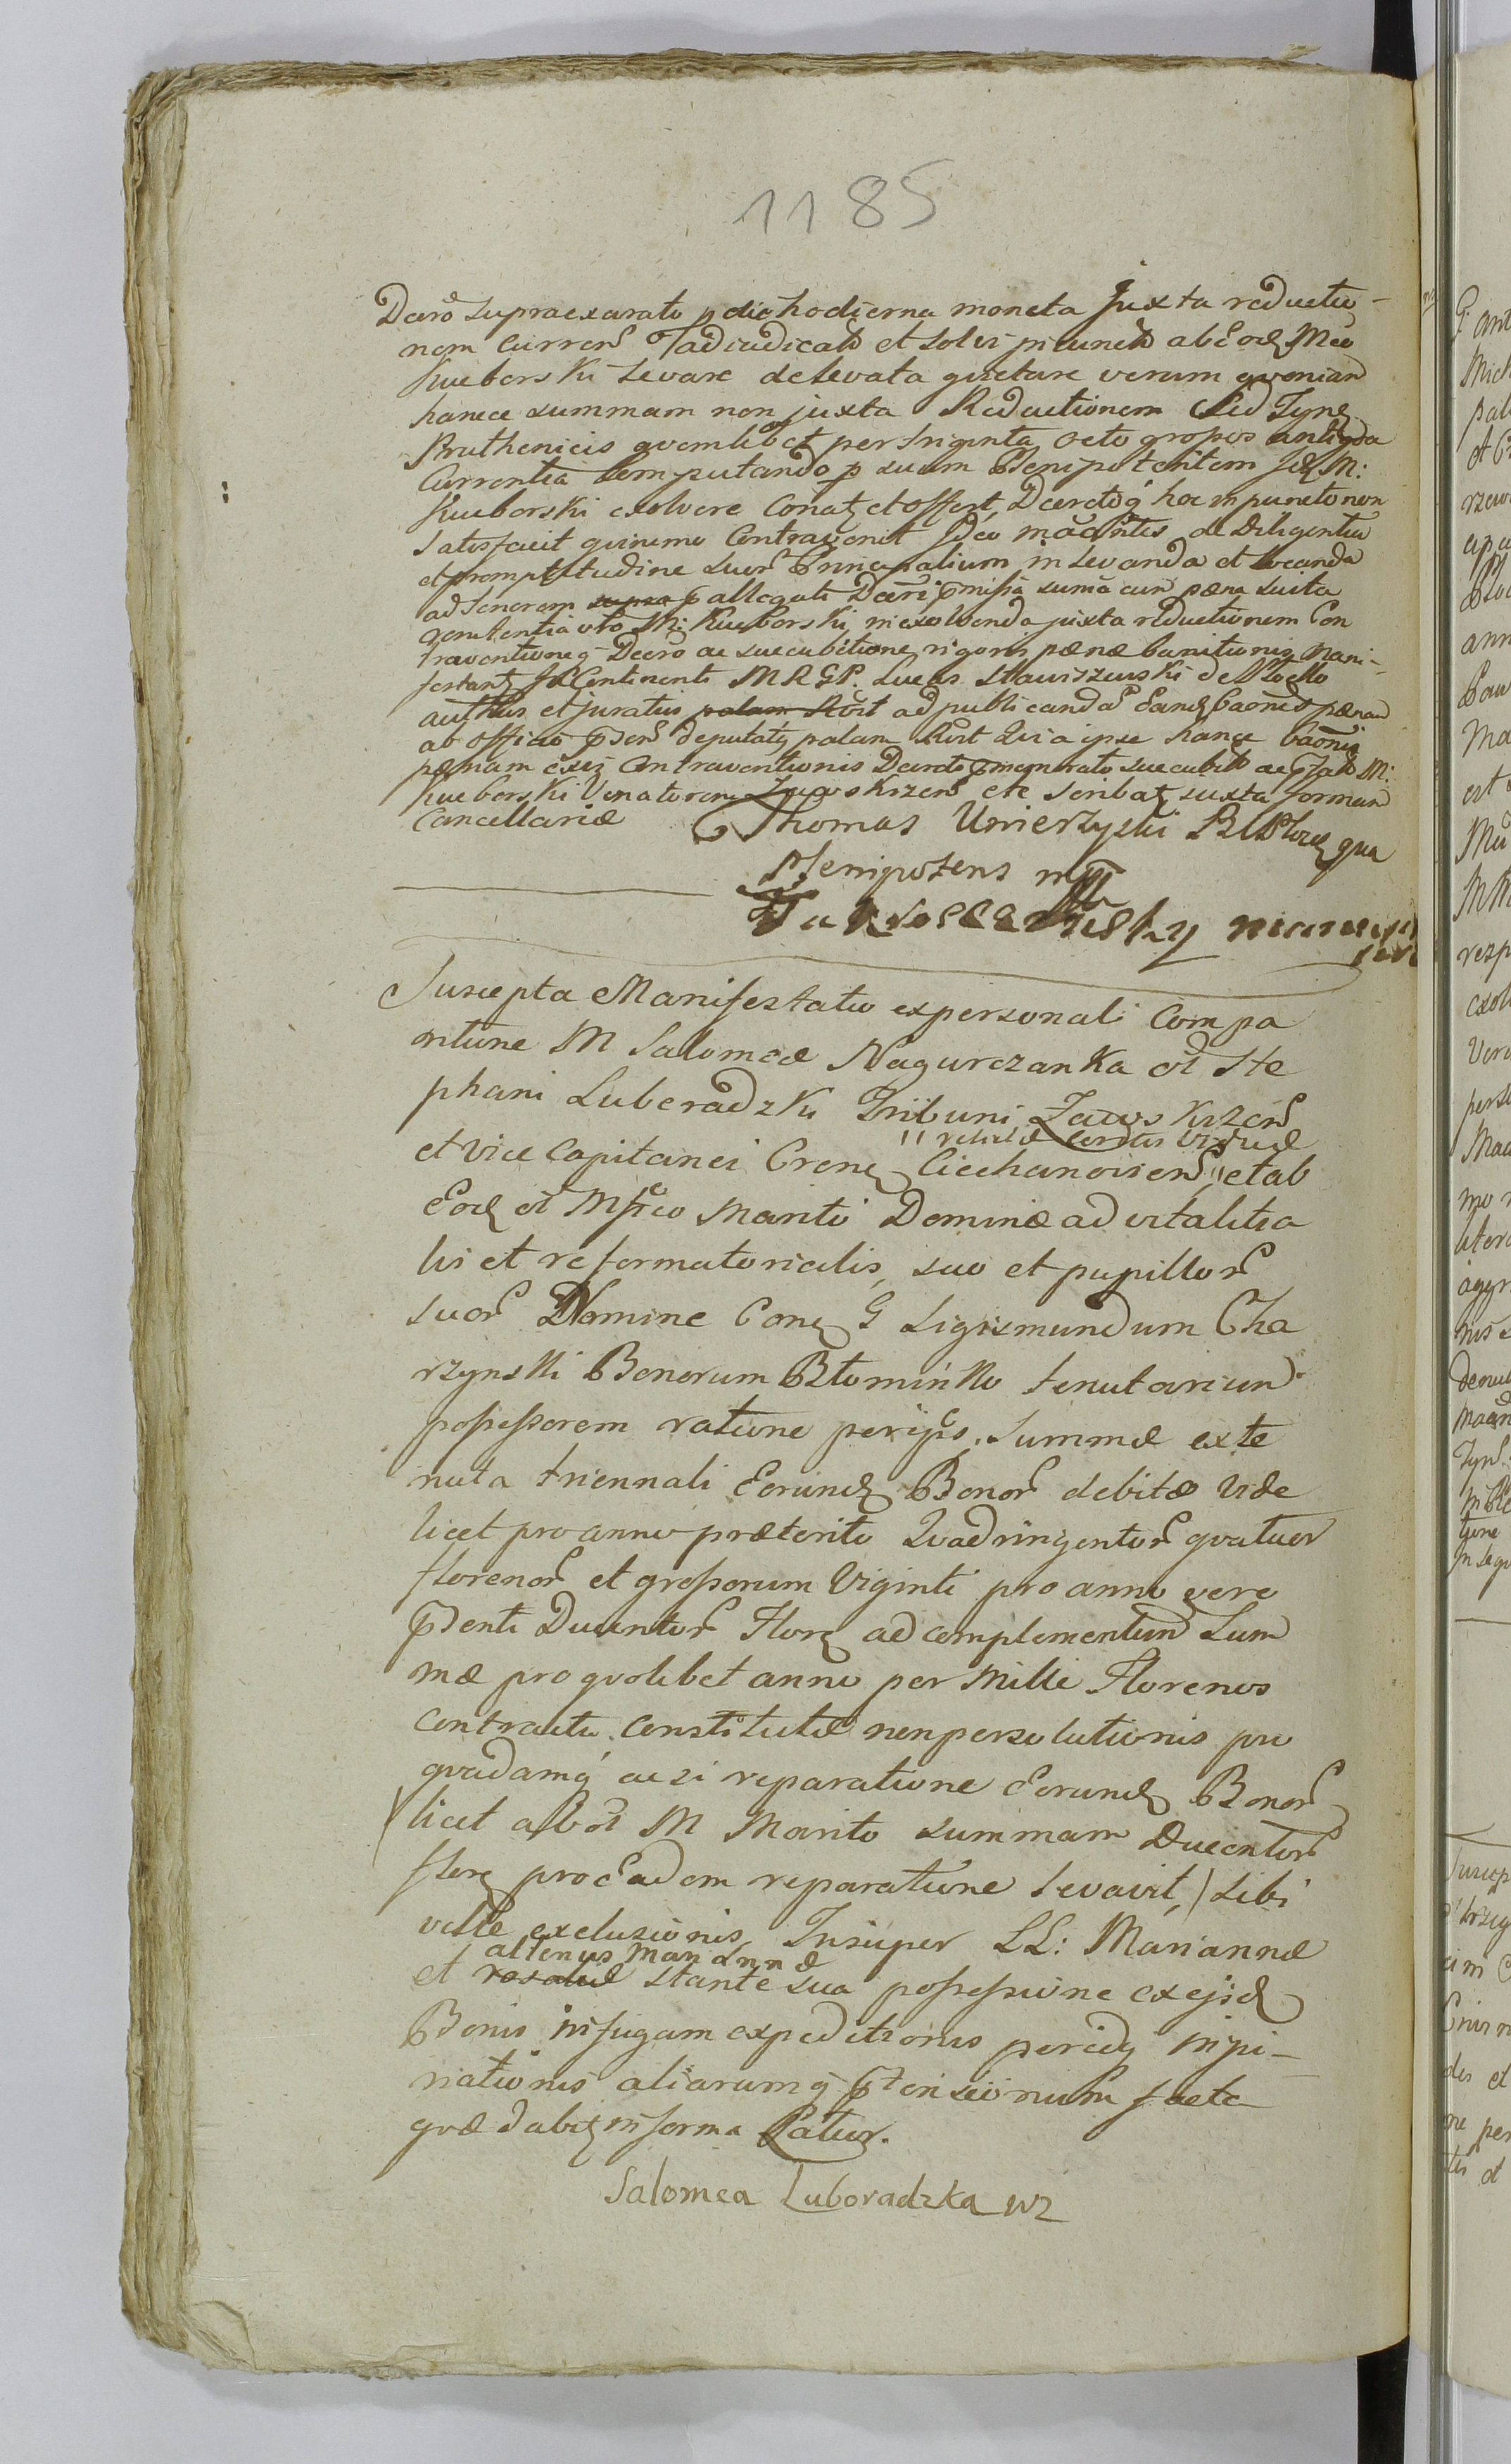 1185
Decro supraexarato p die hodierna moneta juxta reductio-
nem Curren adiudicatā et solvi pñiunctā ab eod Mco
Kueborski Levare de levata quietare verum qvoniam
hance summam non juxta Reductionem sed Tynf
Ruthenicis qvemlibet per triginta octo grossos antiqva
Currentia Computando p suum Plenipotentem Id M:
Kueborski exolvere Conat et offert, Decretoq hoc in puncto non
Satisfacit quinimo Contravenit Ideo mādntes de Diligentia
et promptitudine suor Principalium in Levanda et Locanda
ad tenorem allegati Decri pmissa summa cum pæna lucita
contentia vto M: Kueborski in exolvenda juxta reductionem Con
traventioneq Decro ac succubitione rigoris pænæ banitionis mani-
festant In Continenti MRGP. Lucas Stawiszewski de Plocko
authus et juratus ad publicanda Eand baonis pænam
ab officio pdsen deputatq palam Rcrt Quia ipse hance baonis
pænam ex eis Contraventionis Decreto pmemorato succubit ac M:
Kueborski Venatorem Zawskrzen etc scribat juxta formam
Cancellariæ Thomas Umierzyski B Plocen qua
Plenipotens mp
manu
Suscepta Manifestatio ex personali Compa
ritione M Salomeæ Nagurczanka ol Ste
phani Luboradzki Tribuni Zawskrzen
" relictæ consortis viduæ
et Vice Capitanei Crens Ciechanovien " et ab
Eod ol Mfico Marito Dominæ advitalitia
lis et reformatorialis, suo et pupillor
suor Nomine Con G Sigismundum Cha
rzynski Bonorum Bstominko tenutarium
possessorem ratione periis summæ ex te
nuta triennali Eorund Bonor debitæ vide
licet pro anno præterito Quadringentor qvatuor
florenor et grossorum Viginti pro anno vero
pdenti Ducentor Flore ad complementum Sum
mæ pro qvolibet anno per Mille Florenos
contractu constitutæ non persolutionis pro
qvadamq ac si reparatione Eorund Bonor
(licet ab ol M Marito summam Ducentor
flore pro eadem reparatione levavit,) sibi
velle exclusionis Insuper LL: Mariannæ
alterius Mariannæ
et stante sua possessione ex ejsd
Bonis in fugam expeditionis periid inpi-
niationis aliarumq ptensionum facta
qvæ dabit in forma Latius.
Salomea Luboradzka wz